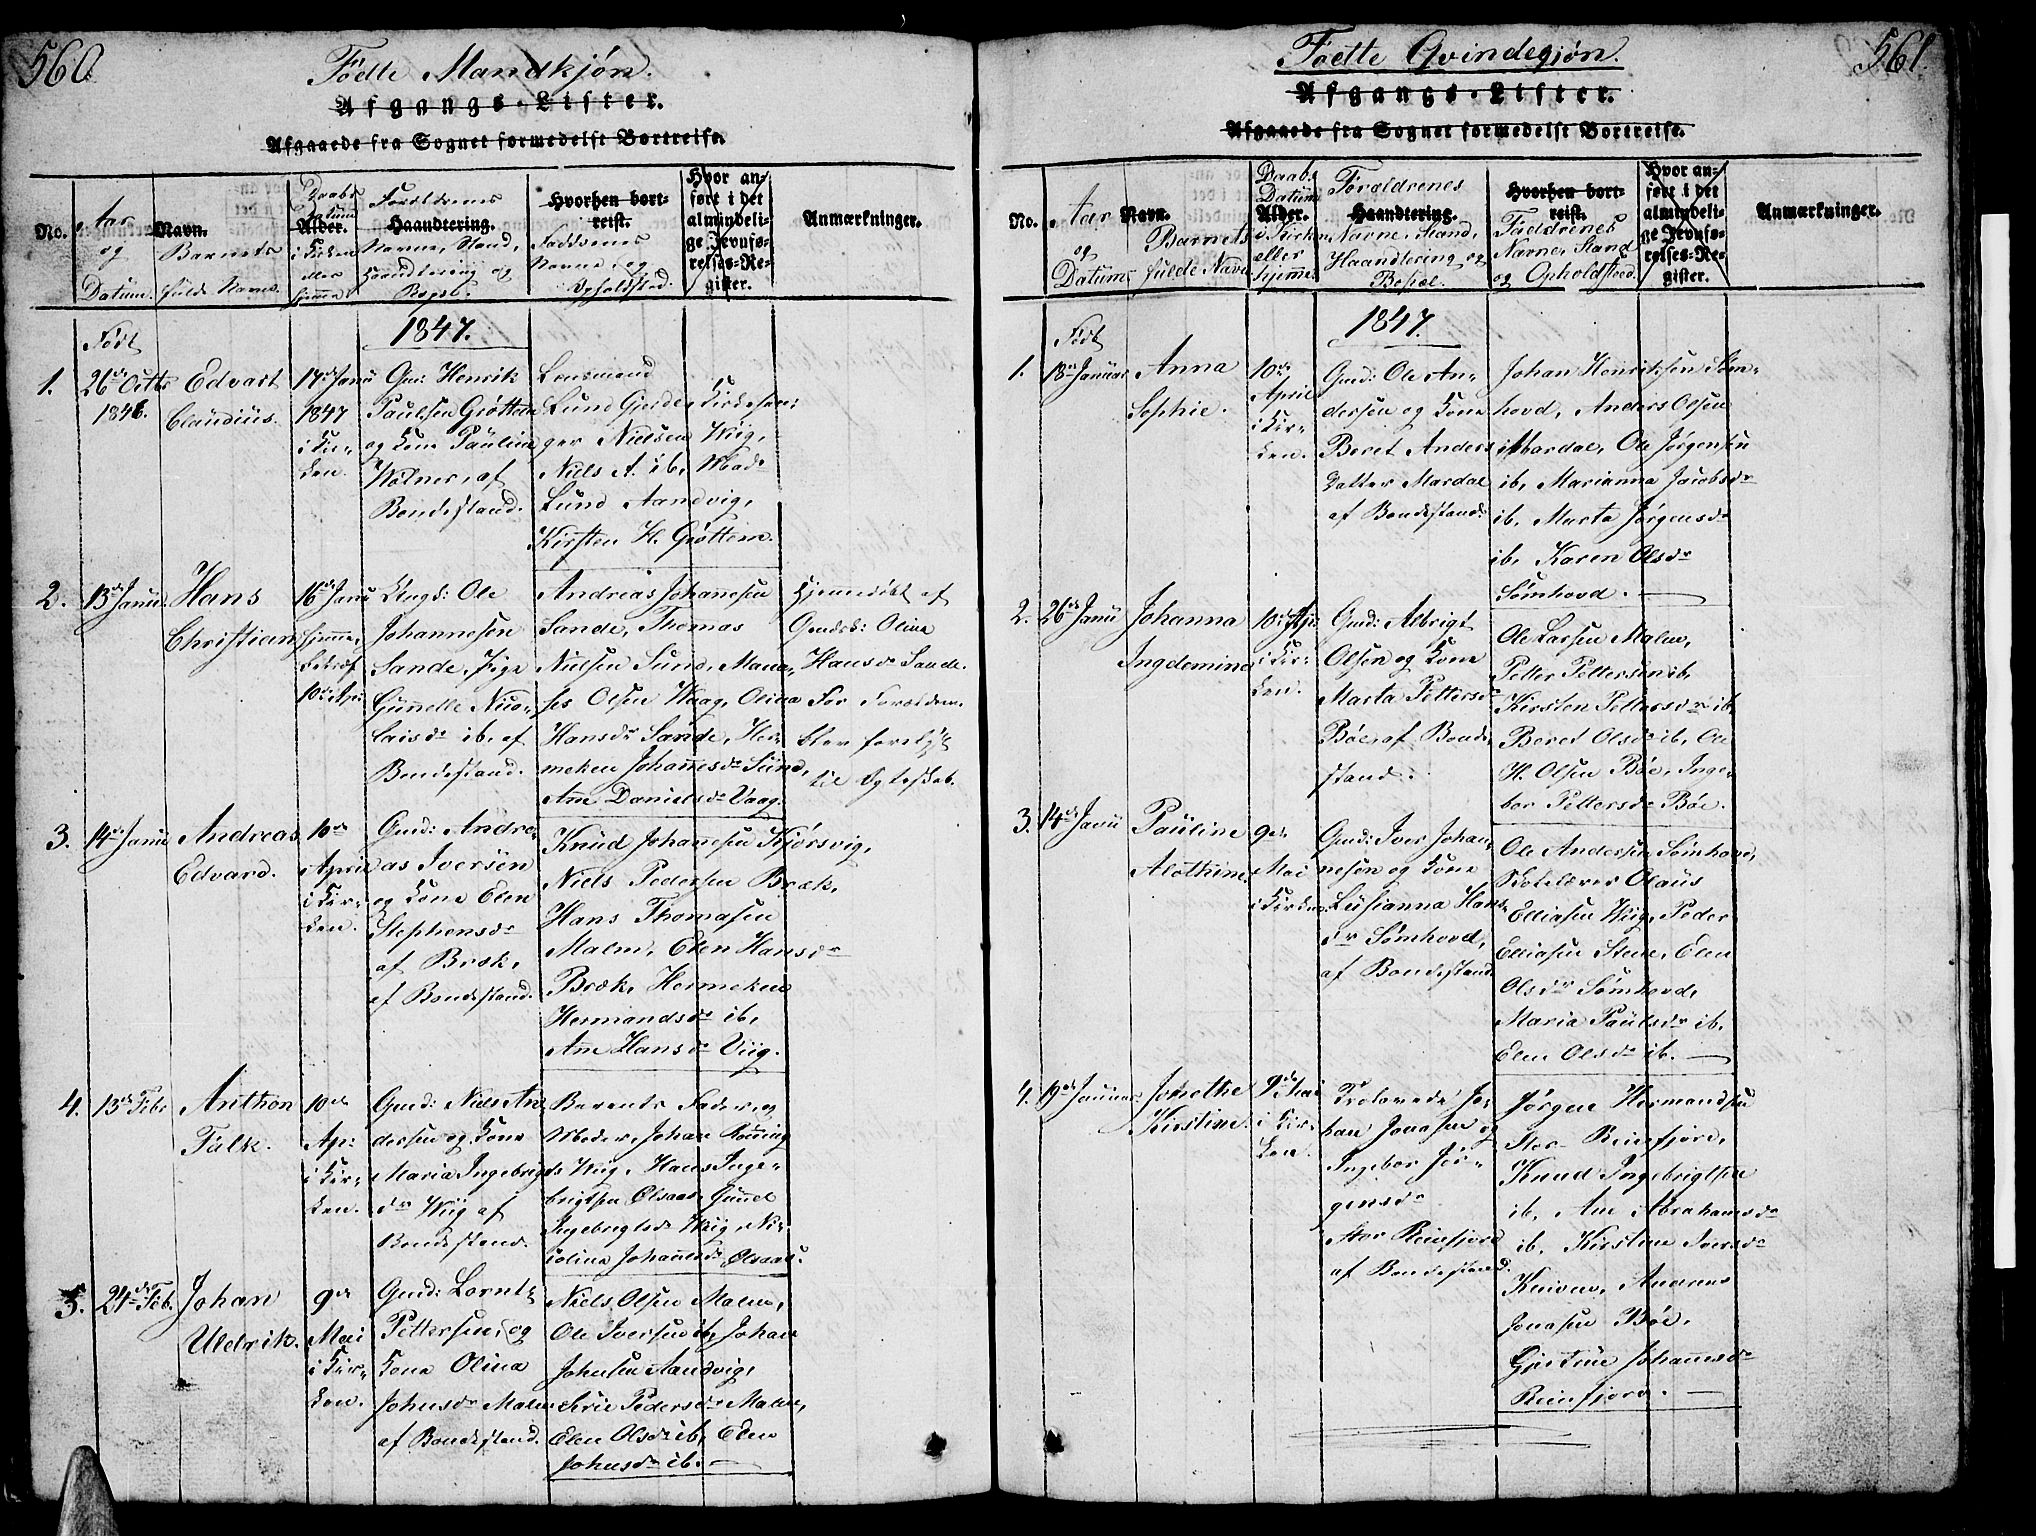 560
Födte Mandkjøn.
Afgangs-Lister.
Afgaaede fra Sognet formedelst Bortreise.
No.
Aar
og
Datum.
Navn.
Barnets
fulde Navn.
Daabs
Datum
Alder.
i Kirken
eller
hjemme
Forældrenes
Haandtering.
Navne, Stand,
Haandtering og
Bopæl.
Hvorhen bort-
reist.
Faddrenes
Navne og
Opholdsted.
Hvor an-
ført i det
almindeli-
ge Jevnfø-
relses-Re-
gister.
Anmærkninger.
Födt
1847.
1.
26de Octbr
1846.
Edvart
Claudius.
17de Janu
1847
i Kir-
ken.
Gm: Henrik
Paulsen Grøttem
og Kone Paulina
Wolner, af
Bondestand.
Lensmand
Lund Gjerde, Kirkesan-
ger Nielsen Wiig,
Niels A. ib, Mad:
Lund Aandvig,
Kirsten H. Grøttem.
2.
13de Janu
Hans
Christian
16de Janu
hjemme,
10de Apr
Ungk: Ole
Johannesen
Sande, Pige
Gunnelle Nico-
laisdr ib, af
Bondestand.
Andreas Johannesen
Sande, Thomas
Nielsen Sund, Mana-
ses Olsen Waag, Olina
Hansdr Sande, Her-
meken Johannesdr Sund,
Ane Danielsdr Vaag.
Hjemmedøbt af
Gaardsk: Olina
Hansdr Sande.
For Forældrene
blev forelyst
til Egteskab.
3.
14de Janu
Andreas
Edvard.
10de
April
i Kir-
ken.
Gmd: Andre-
as Iversen
og Kone Elen
Stephensdr
af Bræk,
af Bondestand.
Knud Johannesen Kjørsvig,
Niels Pedersen Bræk,
Hans Thomasen
Malm, Elen Hansdr
Bræk, Hermeken
Hermandsdr ib,
Ane Hansdr Viig.
4.
13de Febr
Anthon
Falk.
10de
Ap:
i Kir-
ken.
Gmd: Niels An-
dersen og Kone
Maria Ingebrigts
dr Wiig af
Bondestand.
Barnets Fader, og
Moder, Johan Rønning
Wiig, Hans Inge-
brigtsen Olsaas, Gunnel
Ingebrigtsdr Wiig, Ni-
colina Johannesdr Olsaas.
5.
24de Feb.
Johan
Uldrik.
9de
Mai
i Kir-
ken.
Gmd: Lorntz
Pettersen, og
Kone Olina
Johnsdr Malm
af Bondestand.
Niels Olsen Malm,
Ole Iversen ib, Johan
Johnsen Aandvig,
Siri Pedersdr Malm,
Elen Olsdr ib, Elen
Johnsdr ib.
561.
Foedte Qvindegjøn.
Afgangs-Lister.
Afgaaede fra Sognet formedelst Bortreise.
No.
Aar
og
Datum
Navn.
Barnets
fulde Navn
Daabs
Datum
Alder.
i Kirken
eller
hjemme.
Forældrenes
Haandtering.
Navne, Stand,
Haandtering og
Bopæl.
Hvorhen bort-
reist.
Faddrenes
Navne, Stand
og Opholdsted.
Hvor an-
ført i det
almindeli-
ge Jevnfø-
relses-Re-
gister.
Anmærkninger.
Födt
1847.
1.
18de Januar
Anna
Sophie.
10de
April
i Kir-
ken.
Gmd: Ole An-
dersen og Kone
Beret Anders
datter Mardal
af Bondestand.
Johan Henriksen Søm-
hovd, Anders Olsen
Mardal, Ole Jørgensen
ib, Marianna Jacobsdr
ib, Marta Jørgensdr
ib, Karen Olsdr
Sømhovd.
2.
26de Janu
Johanna
Ingdemine
10de Apr
i Kir-
ken.
Gmd: Albrigt
Olsen og Kone
Marta Pettersdr
Bøe, af Bonde-
stand.
Ole Larsen Malm,
Petter Pettersen ib,
Kirsten Pettersdr ib,
Beret Olsdr ib, Ole
H. Olsen Bøe, Inge-
bor Pettersdr Bøe.
3.
14de Janu
Pauline
Alothine
9de
Mai
i Kirken.
Gmd: Iver Johan-
nesen og Kone
Lusianna Hans-
dr Sømhovd,
af Bondestand
Ole Andersen Sømhovd,
Skolelærer Olaus
Elliasen Wiig, Peder
Elliasen Stene, Elen
Olsdr Sømhovd,
Maria Paulsdr ib,
Elen Olsdr ib.
4.
19de Januar
Jonethe
Kirstine.
9de Mai
i Kir-
ken.
Trolovede Jo-
han Jonasen og
Ingebor Jør-
gensdr
Stor Reinsfjord
af Bondestand.
Jørgen Hermandsen
Stor Reinsfjord,
Knud Ingebrigtsen
ib, Ane Abrahamsdr
ib, Kirstine Iversdr
Andreas
Jonasen Bøe,
Gjertrue Johannesdr
Reinsfjord.